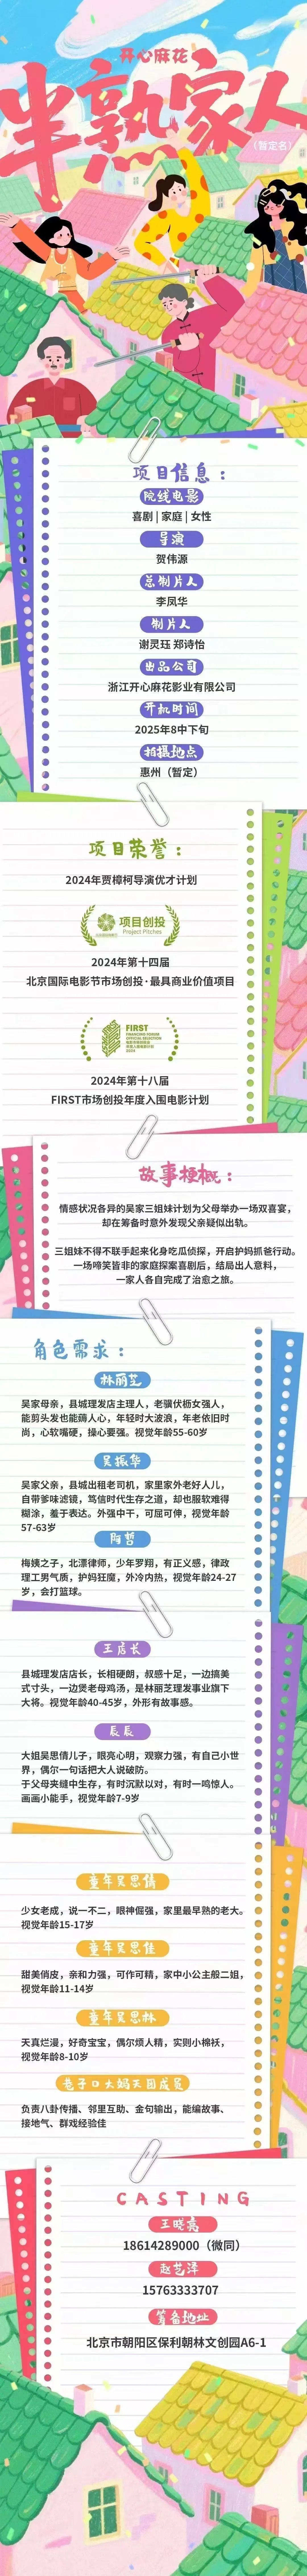 开心麻花
半熟家人
（暂定名）
项目信息：
院线电影
喜剧 | 家庭 | 女性
导演
贺伟源
总制片人
李凤华
制片人
谢灵珏 郑诗怡
出品公司
浙江开心麻花影业有限公司
开机时间
2025年8中下旬
拍摄地点
惠州（暂定）
项目荣誉：
2024年贾樟柯导演优才计划
项目创投
Project Pitches
2024年第十四届
北京国际电影节市场创投·最具商业价值项目
FIRST
FINANCING FORUM
OFFICIAL SELECTION
2024
2024年第十八届
FIRST市场创投年度入围电影计划
故事梗概：
情感状况各异的吴家三姐妹计划为父母举办一场双喜宴，
却在筹备时意外发现父亲疑似出轨。
三姐妹不得不联手起来化身吃瓜侦探，开启护妈抓爸行动。
一场啼笑皆非的家庭探案喜剧后，结局出人意料，
一家人各自完成了治愈之旅。
角色需求：
林丽芝
吴家母亲，县城理发店主理人，老骥伏枥女强人，
能剪头发也能薅人心，年轻时大波浪，年老依旧时
尚，心软嘴硬，操心要强。视觉年龄55-60岁
吴振华
吴家父亲，县城出租老司机，家里家外老好人儿，
自带爹味滤镜，笃信时代生存之道，却也服软难得
糊涂，羞于表达。外强中干，可屈可伸，视觉年龄
57-63岁
阿哲
梅姨之子，北漂律师，少年罗翔，有正义感，律政
理工男气质，护妈狂魔，外冷内热，视觉年龄24-27
岁，会打篮球。
王店长
县城理发店店长，长相硬朗，叔感十足，一边搞美
式寸头，一边煲老母鸡汤，是林丽芝理发事业旗下
大将。视觉年龄40-45岁，外形有故事感。
辰辰
大姐吴思倩儿子，眼亮心明，观察力强，有自己小世
界，偶尔一句话把大人说破防。
于父母夹缝中生存，有时沉默以对，有时一鸣惊人。
画画小能手，视觉年龄7-9岁
童年吴思倩
少女老成，说一不二，眼神倔强，家里最早熟的老大。
视觉年龄15-17岁
童年吴思佳
甜美俏皮，亲和力强，可作可精，家中小公主般二姐，
视觉年龄11-14岁
童年吴思林
天真烂漫，好奇宝宝，偶尔烦人精，实则小棉袄，
视觉年龄8-10岁
巷子口大妈天团成员
负责八卦传播、邻里互助、金句输出，能编故事、
接地气、群戏经验佳
CASTING
王晓亮
18614289000（微同）
赵艺泽
15763333707
筹备地址
北京市朝阳区保利朝林文创园A6-1